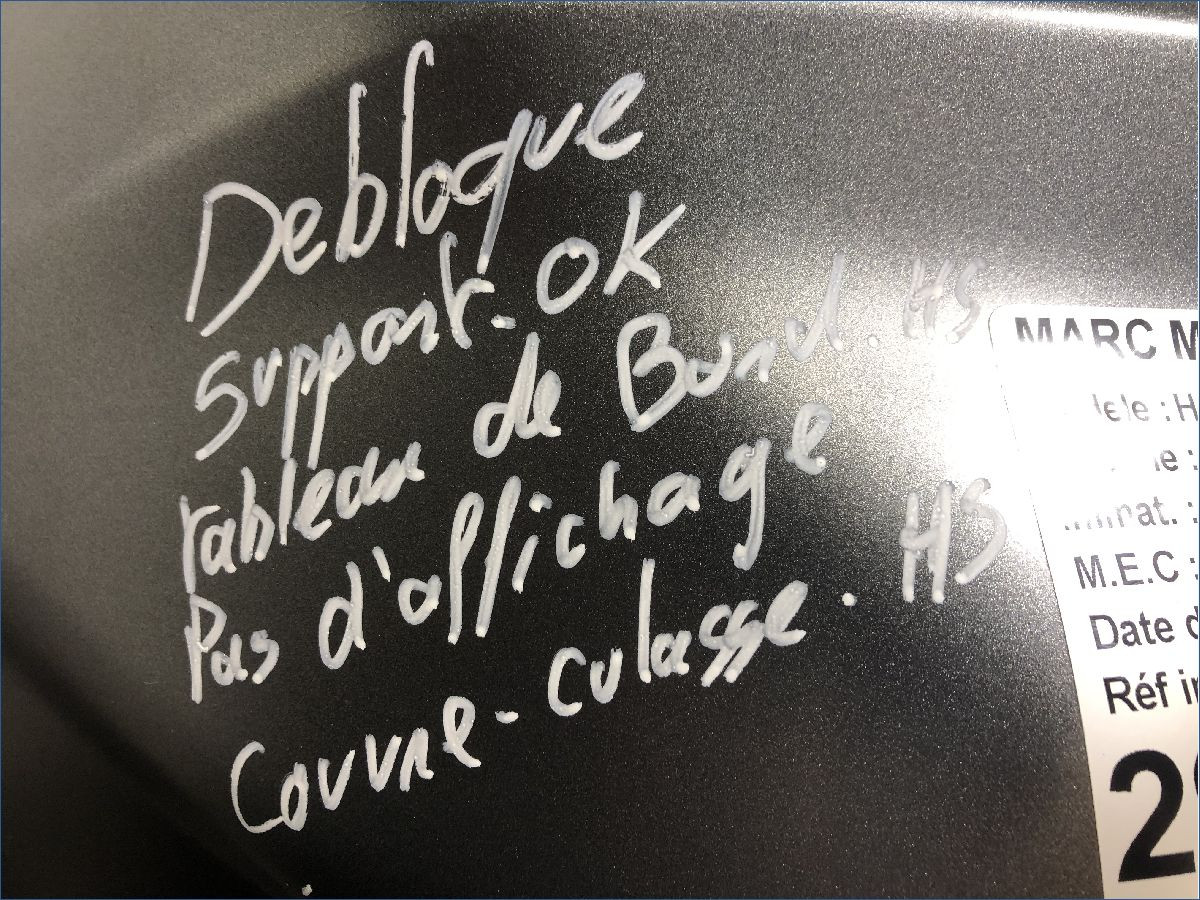 Debloque
support. OK
tableau de Bord. HS
Pas d'affichage
Couvre-culasse. HS
MARC M
: H
:
at. :
M.E.C :
Date d
Réf in
2